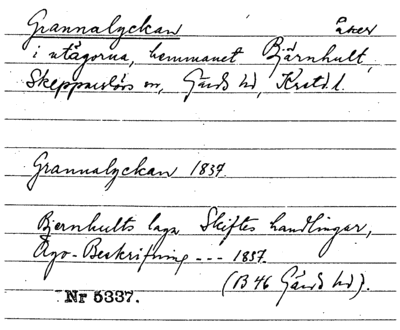 Grannalyckan åker
i utägorna, hemmanet Bjärnhult,
Skepparslövs sn, Gärds hd, Krstd. l.
Grannalyckan 1837.
Bjernhults laga Skiftes handlingar,
Ägo-Beskrifning --- 1837.
(B 46 Gärds hd).
Nr 5337.